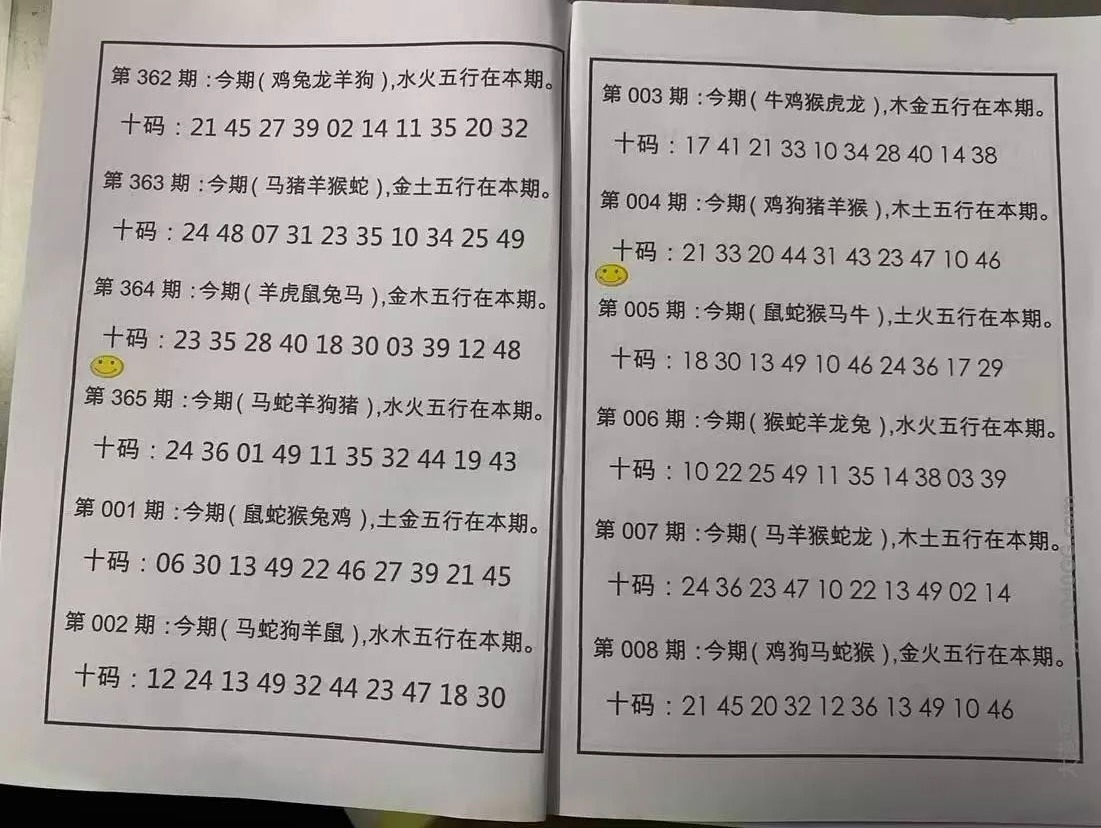 第 362 期 :今期( 鸡兔龙羊狗 ),水火五行在本期。
十码 : 21 45 27 39 02 14 11 35 20 32
第 363 期 :今期( 马猪羊猴蛇 ),金土五行在本期。
十码 : 24 48 07 31 23 35 10 34 25 49
第 364 期 :今期( 羊虎鼠兔马 ),金木五行在本期。
十码 : 23 35 28 40 18 30 03 39 12 48
第 365 期 :今期( 马蛇羊狗猪 ),水火五行在本期。
十码 : 24 36 01 49 11 35 32 44 19 43
第 001 期 :今期( 鼠蛇猴兔鸡 ),土金五行在本期。
十码 : 06 30 13 49 22 46 27 39 21 45
第 002 期 :今期( 马蛇狗羊鼠 ),水木五行在本期。
十码 : 12 24 13 49 32 44 23 47 18 30
第 003 期 :今期( 牛鸡猴虎龙 ),木金五行在本期。
十码 : 17 41 21 33 10 34 28 40 14 38
第 004 期 :今期( 鸡狗猪羊猴 ),木土五行在本期。
十码 : 21 33 20 44 31 43 23 47 10 46
第 005 期 :今期( 鼠蛇猴马牛 ),土火五行在本期。
十码 : 18 30 13 49 10 46 24 36 17 29
第 006 期 :今期( 猴蛇羊龙兔 ),水火五行在本期。
十码 : 10 22 25 49 11 35 14 38 03 39
第 007 期 :今期( 马羊猴蛇龙 ),木土五行在本期。
十码 : 24 36 23 47 10 22 13 49 02 14
第 008 期 :今期( 鸡狗马蛇猴 ),金火五行在本期。
十码 : 21 45 20 32 12 36 13 49 10 46